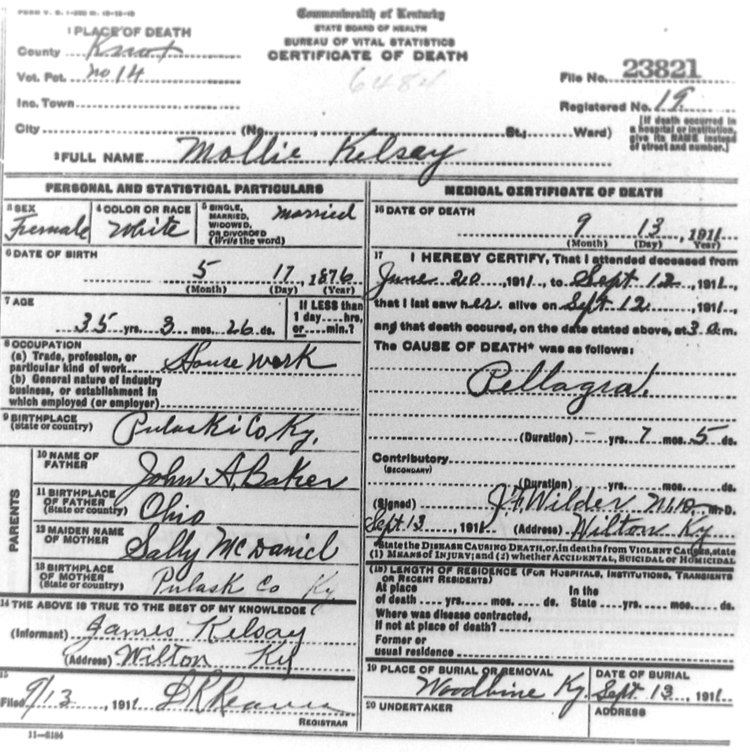 FORM V. S. 1-
Commonwealth of Kentucky
STATE BOARD OF HEALTH
BUREAU OF VITAL STATISTICS
CERTIFICATE OF DEATH
1 PLACE OF DEATH
County Knox
Vot. Pct. no 14
File No. 23821
Inc. Town
Registered No. 19
City (No. St.; Ward)
[If death occurred in a hospital or institution, give its NAME instead of street and number.]
2 FULL NAME Mollie Kelsay
PERSONAL AND STATISTICAL PARTICULARS
3 SEX Female
4 COLOR OR RACE White
5 SINGLE, MARRIED, WIDOWED, OR DIVORCED (Write the word) married
6 DATE OF BIRTH
5 17, 1876
(Month) (Day) (Year)
7 AGE
35 yrs. 3 mos. 26 ds.
If LESS than 1 day....hrs. or....min.?
8 OCCUPATION
(a) Trade, profession, or particular kind of work House work
(b) General nature of industry business, or establishment in which employed (or employer)
9 BIRTHPLACE (State or country) Pulaski Co, Ky.
PARENTS
10 NAME OF FATHER John A. Baker
11 BIRTHPLACE OF FATHER (State or country) Ohio
12 MAIDEN NAME OF MOTHER Sally McDaniel
13 BIRTHPLACE OF MOTHER (State or country) Pulask Co Ky
14 THE ABOVE IS TRUE TO THE BEST OF MY KNOWLEDGE
(Informant) James Kelsay
(Address) Wilton Ky
15
Filed 9/13, 1911
REGISTRAR
11-6184
MEDICAL CERTIFICATE OF DEATH
16 DATE OF DEATH
9 13, 1911
(Month) (Day) (Year)
17 I HEREBY CERTIFY, That I attended deceased from
June 20, 1911, to Sept 12, 1911,
that I last saw her alive on Sept 12, 1911,
and that death occured, on the date stated above, at 3 a.m.
The CAUSE OF DEATH* was as follows:
Pellagra.
(Duration) - yrs. 7 mos. 5 ds.
Contributory
(SECONDARY)
(Duration) yrs. mos. ds.
(Signed) Wilder M.D. M.D.
Sept. 13, 1911 (Address) Wilton Ky
*State the DISEASE CAUSING DEATH, or, in deaths from VIOLENT CAUSES, state
(1) MEANS OF INJURY; and (2) whether ACCIDENTAL, SUICIDAL or HOMICIDAL
(18) LENGTH OF RESIDENCE (FOR HOSPITALS, INSTITUTIONS, TRANSIENTS OR RECENT RESIDENTS)
At place of death yrs. mos. ds. In the State yrs. mos. ds.
Where was disease contracted,
If not at place of death?
Former or
usual residence
19 PLACE OF BURIAL OR REMOVAL
Woodbine Ky.
DATE OF BURIAL
Sept 13, 1911
20 UNDERTAKER
ADDRESS